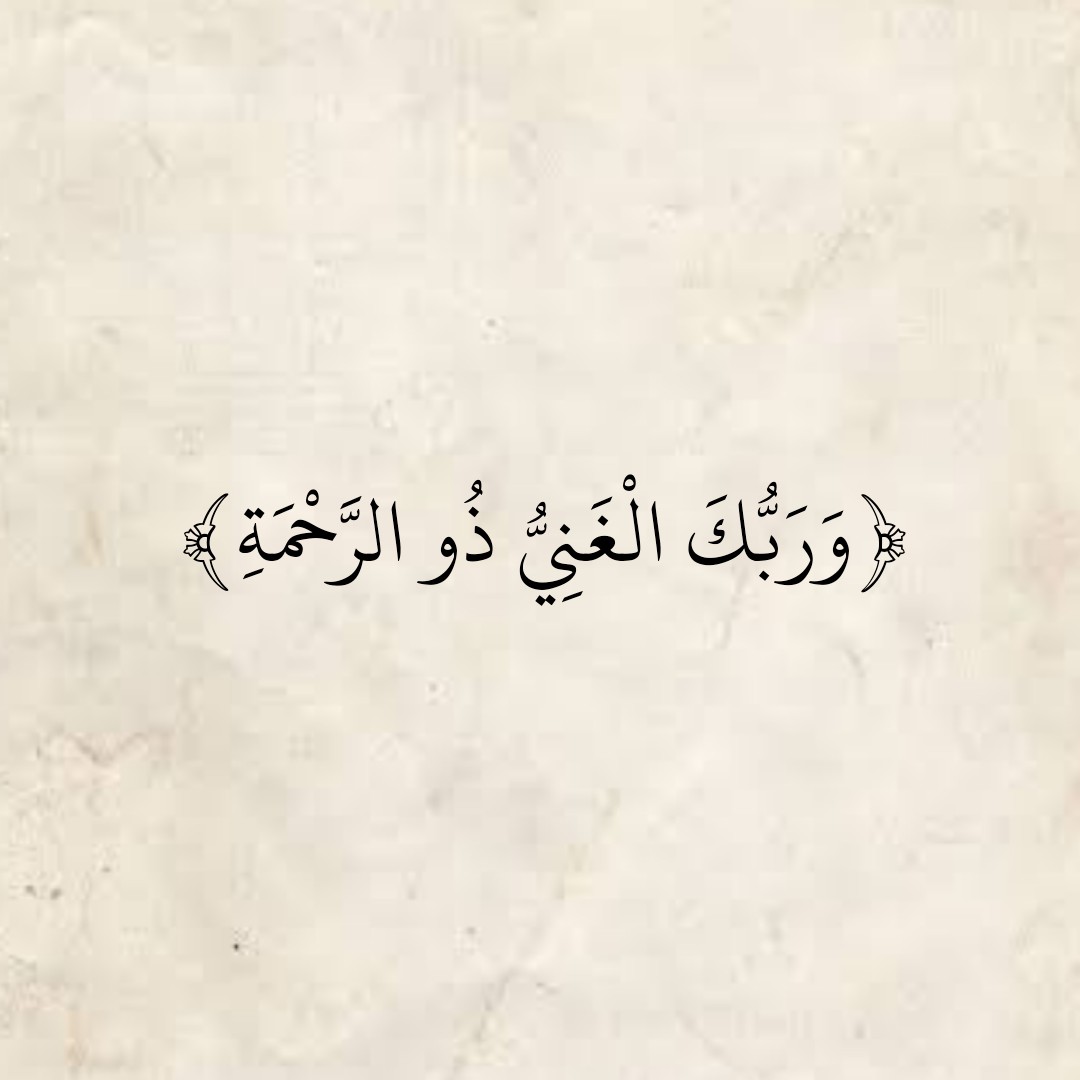 ﴿وَرَبُّكَ الْغَنِيُّ ذُو الرَّحْمَةِ﴾